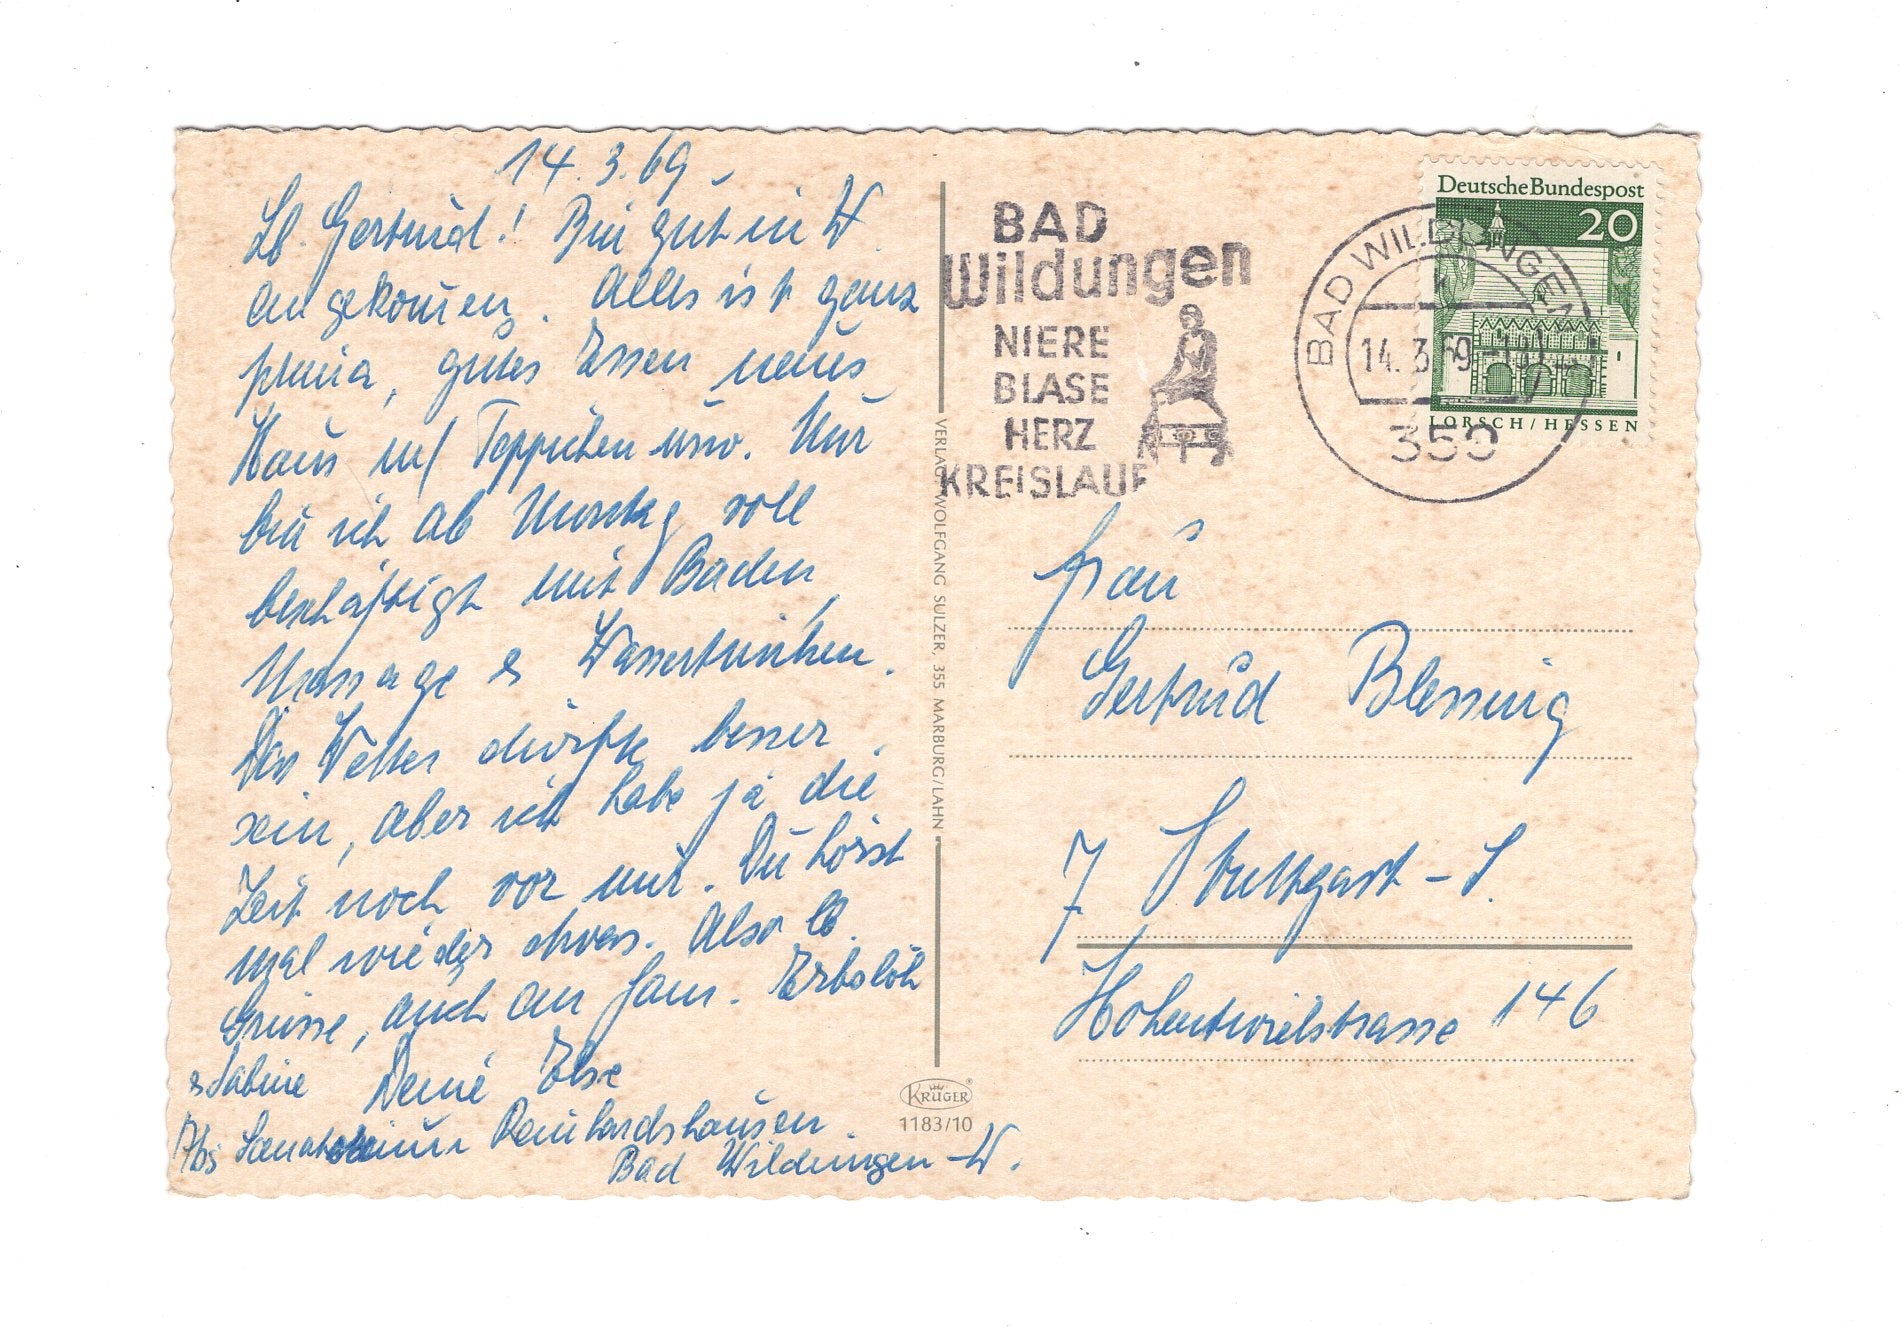 14.3.69
Lb. Gertrud! Bin gut in W.
angekommen. Alles ist ganz
prima, gutes Essen neues
Haus m/ Teppichen usw. Nur
bin ich ab Montag voll
beschäftigt mit Baden,
Massage & Wassertrinken.
Das Wetter dürfte besser
sein, aber ich habe ja die
Zeit noch vor mir. Du hörst
mal wieder etwas. Also lb.
Grüsse, auch an Fam. Erbslöh
& Sabine Deine Else
Abs Sanatorium Reinhardshausen
Bad Wildungen-W.
VERLAG: WOLFGANG SULZER, 355 MARBURG/LAHN
KRÜGER
1183/10
BAD
Wildungen
NIERE
BLASE
HERZ
KREISLAUF
BAD WILDUNGEN
k
14.3.69
359
Deutsche Bundespost
20
LORSCH/HESSEN
Frau
Gertrud Blessing
7 Stuttgart-S.
Hohentwielstrasse 146